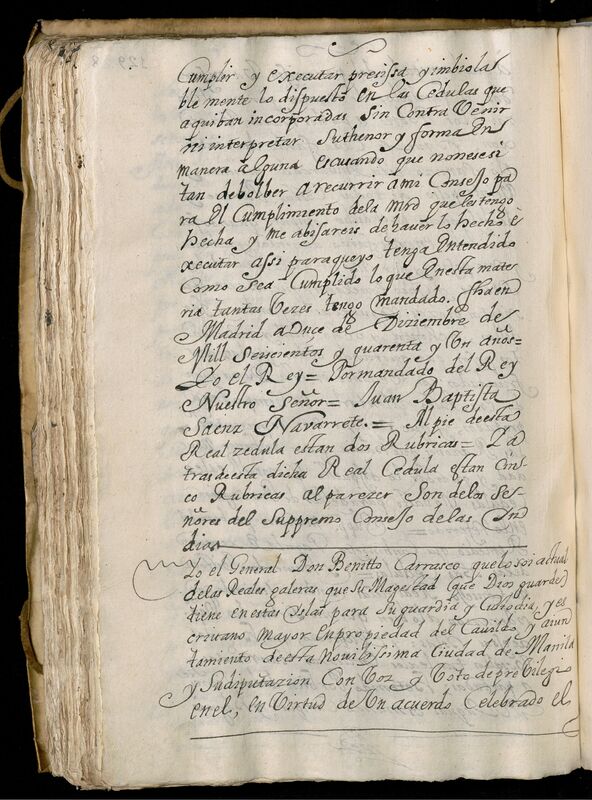 Cumplir y executar presissa y imbiola
ble mente lo dispuesto en las Cedulas que
aqui ban incorporadas sin Contra Venir
ni interpretar su thenor y forma en
manera alguna escusando que nonesesi
tan debolber a recurrir a mi Consejo pa
ra el Cumplimiento dela mrd que les tengo
hecha y me abisareis de haver lo hecho è
xecutar assi para que yo tenga entendido
Como sea Cumplido lo que en esta mate
ria tantas Vezes tengo mandado. fha en
Madrid a Once de Diziembre de
Mill seiscientos y quarenta y Un años=
Yo el Rey= Por mandado del Rey
Nuestro Señor= Juan Baptista
Saenz Navarrete.= Al pie de esta
Real zedula estan dos Rubricas= Y a
tras de esta dicha Real Cedula estan sin
co Rubricas al parezer son de los se-
ñores del Suppremo Consejo de las Yn
dias
Yo el General Don Benitto Carrasco que lo soi actual
de las Reales galeras que Su Magestad (que Dios guarde)
tiene en estas Islas para su guardia y Custodia, y es
crivano Mayor en propiedad del Cavildo y aiun
tamiento de esta Novilissima Ciudad de Manila
y su diputazion Con Voz y Voto de preVilegi
en el, en Virtud de Un acuerdo Celebrado el